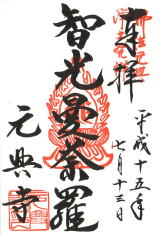 奉拝
平成十五年
七月十三日
智光曼荼羅
元興寺